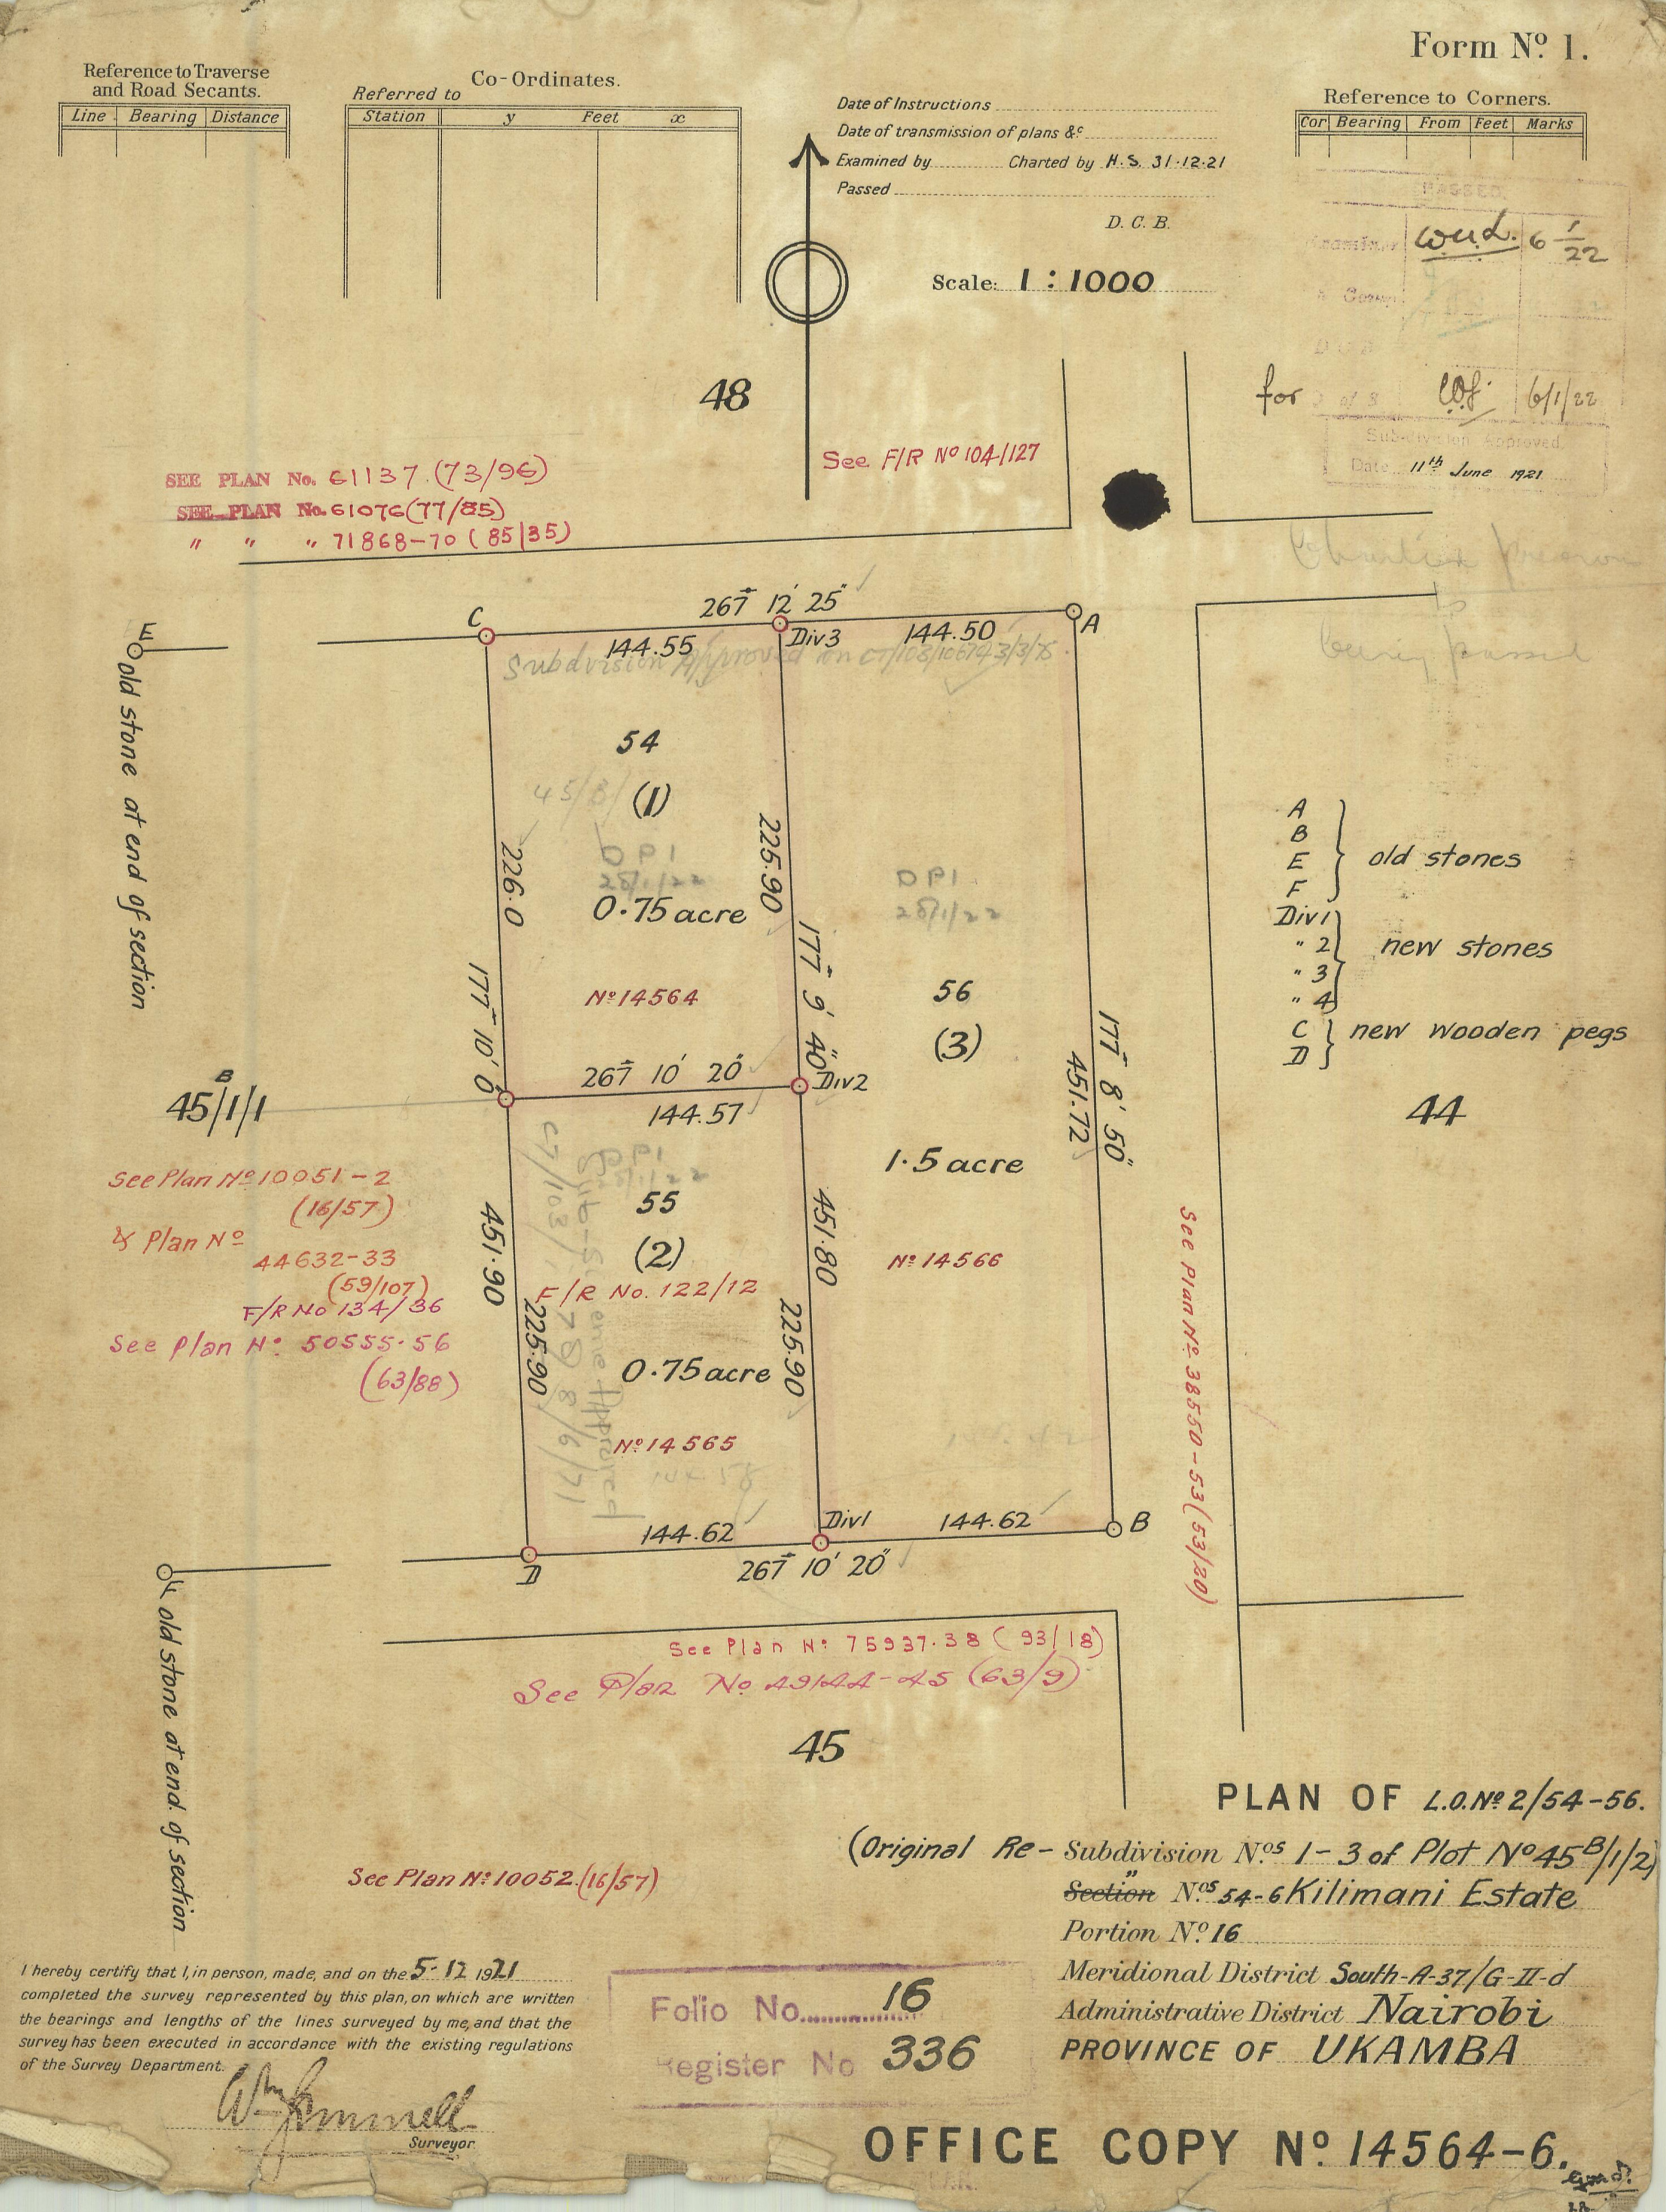 Form Nº 1.
Reference to Traverse
and Road Secants.
Line Bearing Distance
Co-Ordinates.
Referred to
Station y Feet x
Date of Instructions
Date of transmission of plans &c
Examined by Charted by H.S. 31·12·21
Passed
D. C. B.
Scale: 1 : 1000
Reference to Corners.
Cor Bearing From Feet Marks
PASSED
6 1/22
for
6/1/22
Subdivision Approved.
Date 11th June 1921
48
See F/R Nº 104/127
SEE PLAN No. 61137 (73/96)
SEE PLAN No. 61076 (77/85)
" " " 71868-70 (85/35)
being passed
E
old stone at end of section
C
267° 12' 25"
A
144.55
Div3
144.50
Subdivision Approved on
54
(1)
45/B/
226.0
225.90
DPI
28/1/22
0·75 acre
DPI
28/1/22
A
B
E
F
old stones
Div1
" 2
" 3
" 4
new stones
C
D
new wooden pegs
177° 10' 0"
177° 9' 40"
Nº 14564
56
(3)
451.72
177° 8' 50"
267° 10' 20"
Div2
144.57
45B/1/1
44
1·5 acre
DPI
55
(2)
F/R No. 122/12
451·90
225.90
451·80
225.90
Nº 14566
0·75 acre
Nº 14565
See Plan Nº 10051-2
(16/57)
& Plan Nº
44632-33
(59/107)
F/R No 134/36
See Plan Nº 50555·56
(63/88)
See Plan Nº 38550-53 (53/20)
144.62
Div1
144.62
B
D
267° 10' 20"
F
old stone at end of section
See Plan Nº 75937·38 (93/18)
See Plan No 49144-45 (63/9)
45
See Plan Nº 10052 (16/57)
PLAN OF L.O. Nº 2/54-56.
(Original Re- Subdivision Nos 1-3 of Plot Nº 45B/1/2)
Section " Nos 54-6 Kilimani Estate
Portion Nº 16
Meridional District South-A-37/G-II-d
Administrative District Nairobi
PROVINCE OF UKAMBA
I hereby certify that I, in person, made, and on the 5-12 1921
completed the survey represented by this plan, on which are written
the bearings and lengths of the lines surveyed by me, and that the
survey has been executed in accordance with the existing regulations
of the Survey Department.
Surveyor
Folio No. 16
Register No 336
OFFICE COPY Nº 14564-6.